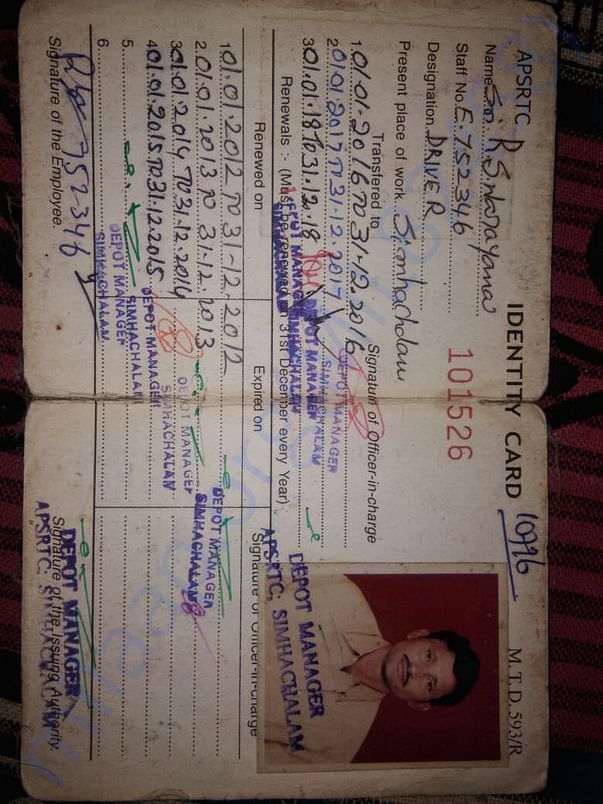 APSRTC IDENTITY CARD 10996 M.T.D. 593/R
Name Sri. R.
Staff No. E.752346 101526
Designation DRIVER
Present place of work Simhachalam
Transferred to Signature of Officer-in-charge
1. 01.01.2016 TO 31.12.2016 DEPOT MANAGER
2. 01.01.2017 TO 31.12.2017 SIMHACHALAM
3. 01.01.18 TO 31.12.18 DEPOT MANAGER
SIMHACHALAM
DEPOT MANAGER
APSRTC, SIMHACHALAM
Renewals :- (Must be renewed on 31st December every Year)
DEPOT MANAGER
SIMHACHALAM
Renewed on Expired on Signature of Officer-in-charge
1. 01.01.2012 TO 31-12-2012 DEPOT MANAGER
SIMHACHALAM
2. 01.01.2013 TO 31-12-2013
3. 01.01.2014 TO 31.12.2014 DEPOT MANAGER
SIMHACHALAM
4. 01.01.2015 TO 31.12.2015 DEPOT MANAGER
SIMHACHALAM
5. DEPOT MANAGER
SIMHACHALAM
6.
752346
DEPOT MANAGER
APSRTC. SIMHACHALAM
Signature of the Employee. Signature of the Issuing Authority.